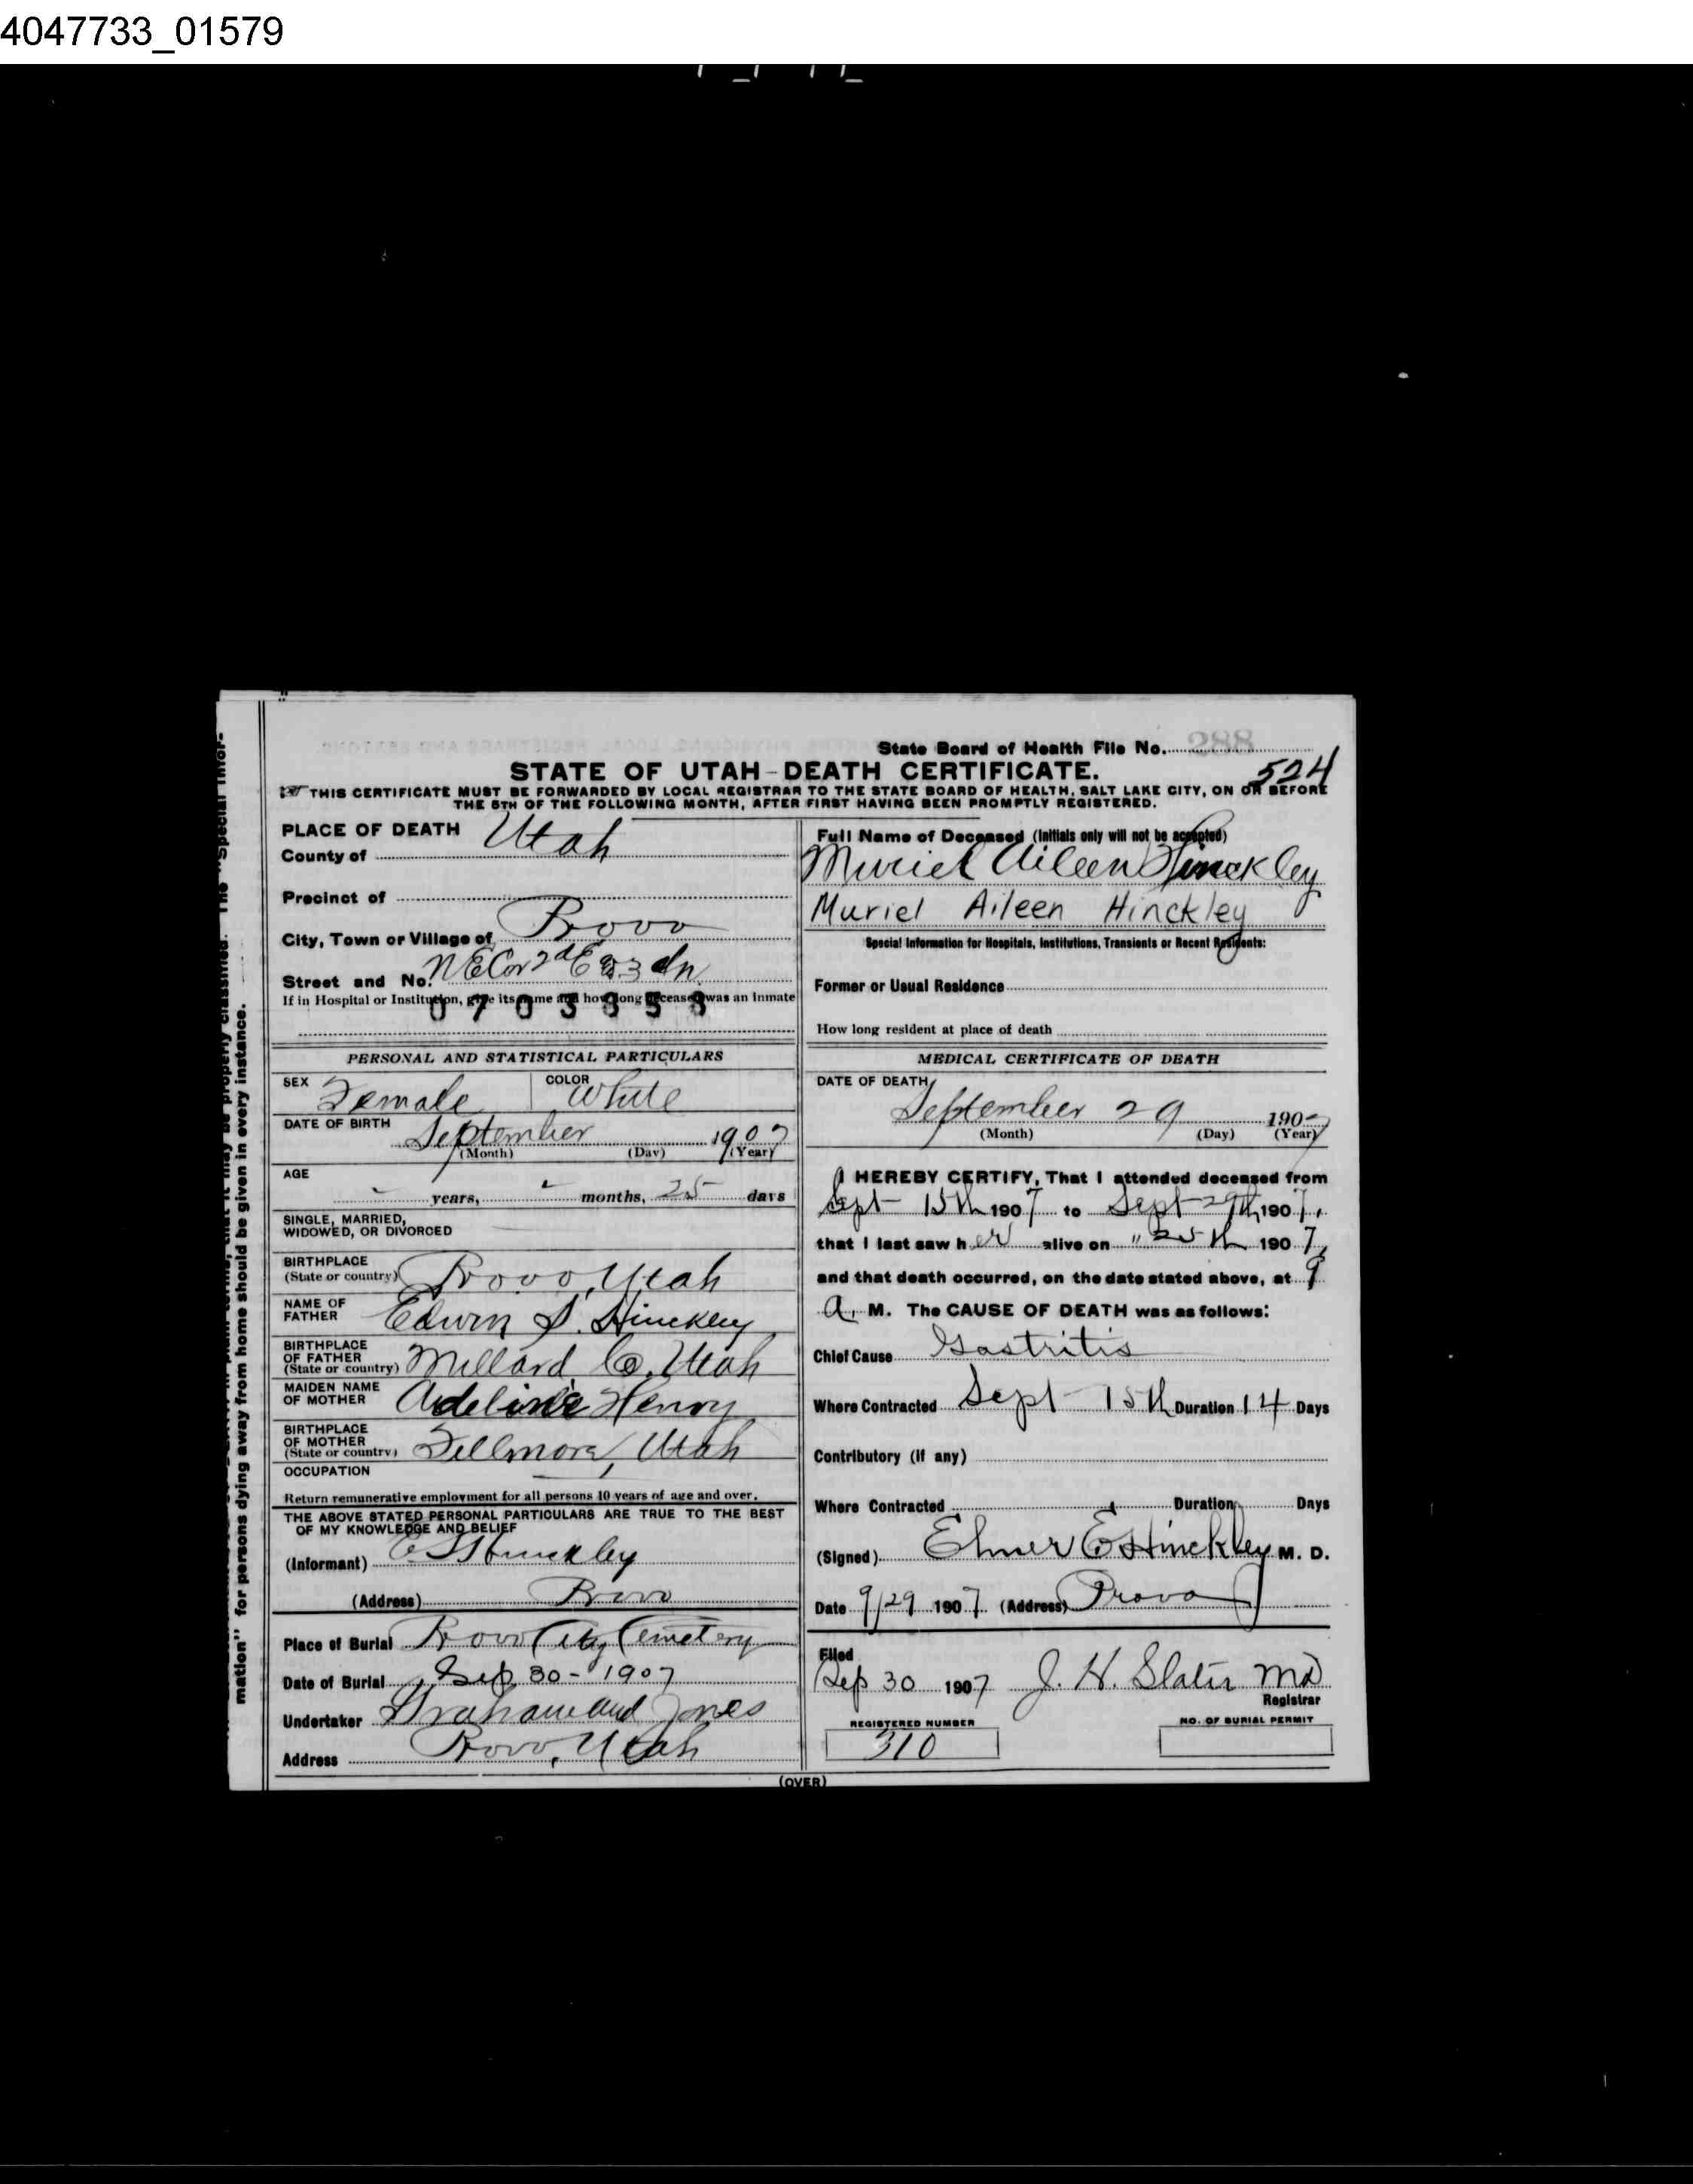 4047733_01579
State Board of Health File No. 288
STATE OF UTAH-DEATH CERTIFICATE.
524
THIS CERTIFICATE MUST BE FORWARDED BY LOCAL REGISTRAR TO THE STATE BOARD OF HEALTH, SALT LAKE CITY, ON OR BEFORE
THE 5TH OF THE FOLLOWING MONTH, AFTER FIRST HAVING BEEN PROMPTLY REGISTERED.
PLACE OF DEATH
County of Utah
Precinct of
City, Town or Village of Provo
Street and No. N E Cor 2d E & 3 dn
If in Hospital or Institution, give its name and how long deceased was an Inmate
0703858
PERSONAL AND STATISTICAL PARTICULARS
SEX Female COLOR White
DATE OF BIRTH September 1907
(Month) (Day) (Year)
AGE
- years, - months, 25 days
SINGLE, MARRIED,
WIDOWED, OR DIVORCED
BIRTHPLACE
(State or country) Provo, Utah
NAME OF
FATHER Edwin S. Hinckley
BIRTHPLACE
OF FATHER
(State or country) Millard Co. Utah
MAIDEN NAME
OF MOTHER Adeline Henry
BIRTHPLACE
OF MOTHER
(State or country) Fillmore, Utah
OCCUPATION
Return remunerative employment for all persons 10 years of age and over.
THE ABOVE STATED PERSONAL PARTICULARS ARE TRUE TO THE BEST
OF MY KNOWLEDGE AND BELIEF
(Informant) E S Hinckley
(Address) Provo
Place of Burial Provo City Cemetery
Date of Burial Sep 30 - 1907
Undertaker Graham and Jones
Address Provo, Utah
Full Name of Deceased (Initials only will not be accepted)
Muriel Aileen Hinckley
Muriel Aileen Hinckley
Special Information for Hospitals, Institutions, Transients or Recent Residents:
Former or Usual Residence
How long resident at place of death
MEDICAL CERTIFICATE OF DEATH
DATE OF DEATH
September 29 1907
(Month) (Day) (Year)
I HEREBY CERTIFY, That I attended deceased from
Sept 15th 1907 to Sept 29th, 1907,
that I last saw her alive on " 25th 1907,
and that death occurred, on the date stated above, at 9
A. M. The CAUSE OF DEATH was as follows:
Chief Cause Gastritis
Where Contracted Sept 15th Duration 14 Days
Contributory (if any)
Where Contracted Duration Days
(Signed) Elmer E Hinckley M. D.
Date 9/29 1907 (Address) Provo
Filed
Sep 30 1907 J. H. Slater MD
Registrar
REGISTERED NUMBER
310
NO. OF BURIAL PERMIT
(OVER)
mation" for persons dying away from home should be given in every instance.